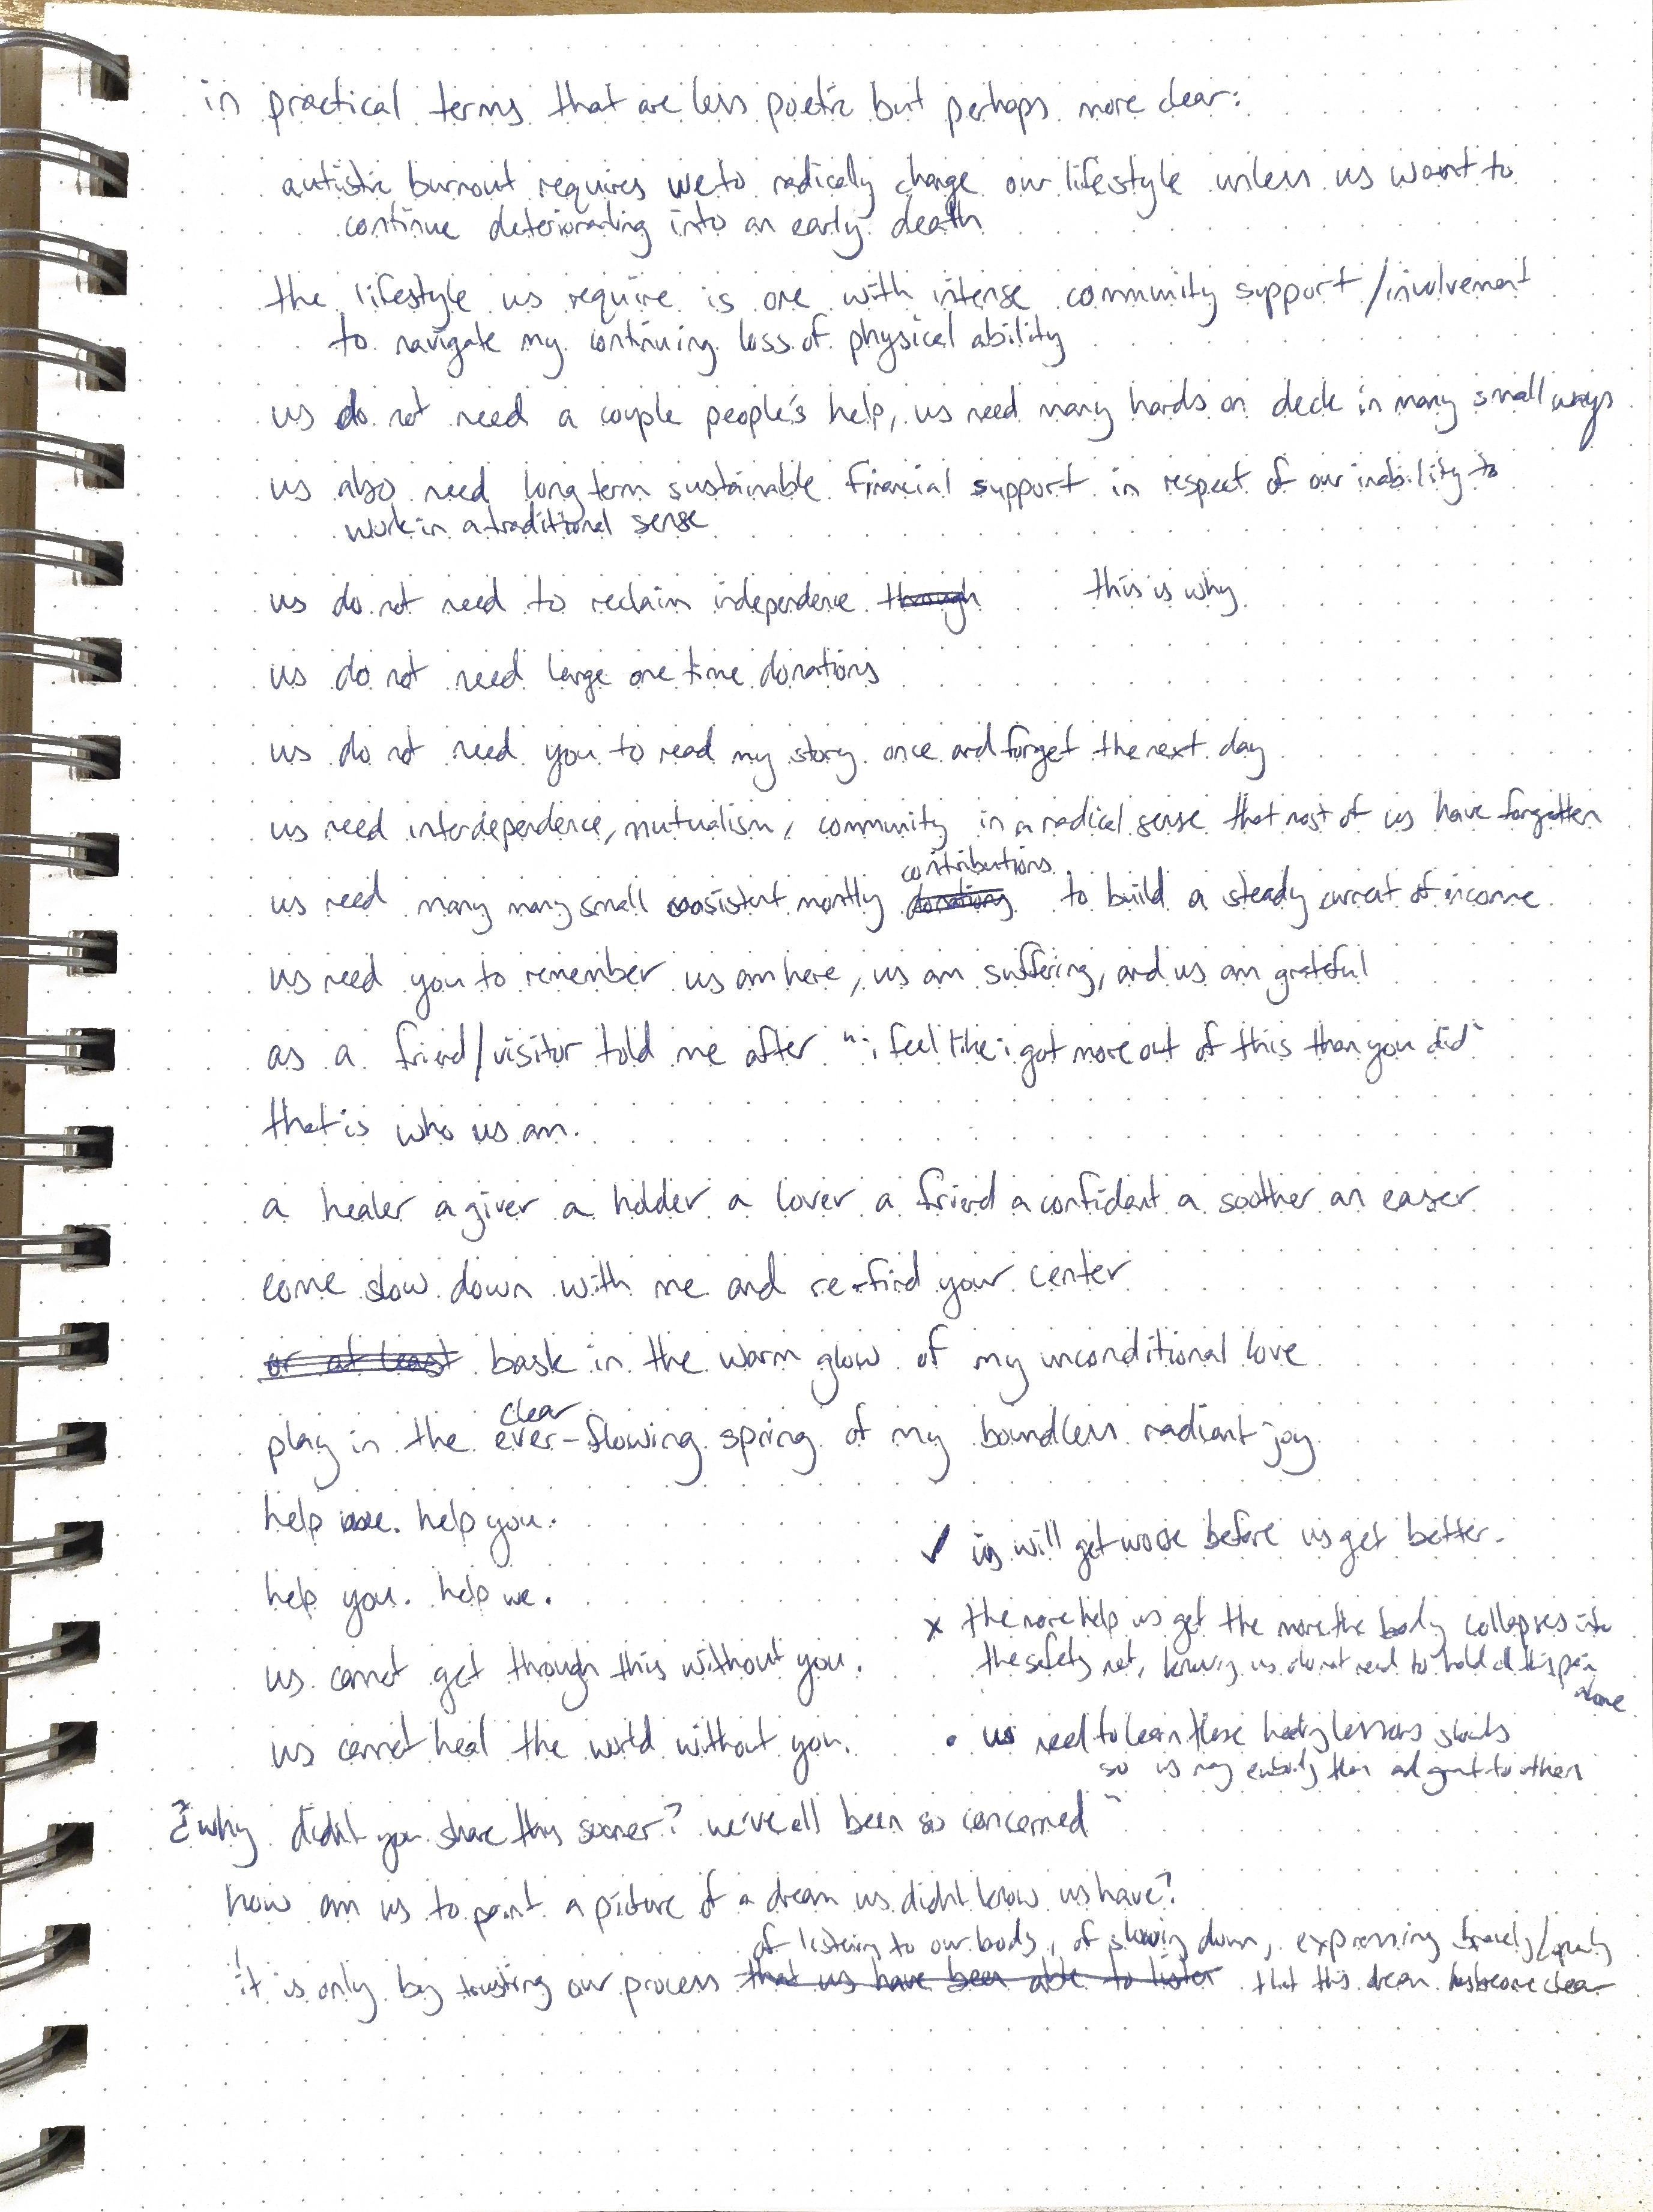 in practical terms that are less poetic but perhaps more clear:
autistic burnout requires we to radically change our lifestyle unless us want to
continue deteriorating into an early death
the lifestyle us require is one with intense community support/involvement
to navigate my continuing loss of physical ability
us do not need a couple people's help, us need many hands on deck in many small ways
us also need long term sustainable financial support in respect of our inability to
work in a traditional sense
us do not need to reclaim independence though this is why
us do not need large one time donations
us do not need you to read my story once and forget the next day
us need interdependence, mutualism, community in a radical sense that most of us have forgotten
contributions
us need many many small consistent montly donations to build a steady current of income
us need you to remember us am here, us am suffering, and us am grateful
as a friend/visitor told me after "i feel like i got more out of this than you did"
that is who us am.
a healer a giver a holder a lover a friend a confidant a soother an easer
come slow down with me and re-find your center
or at least bask in the warm glow of my unconditional love
clear
play in the ever-flowing spring of my boundless radiant joy
help me. help you.
help you. help we.
us cannot get though this without you.
us cannot heal the world without you.
✓ us will get worse before us get better.
x the more help us get the more the body collapses into
the safety net, knowing us do not need to hold all this pain
alone
• us need to learn these healing lessons slowly
so us may embody them and grant to others
why didn't you share this sooner? we've all been so concerned"
how am us to paint a picture of a dream us didn't know us have?
of listening to our body, of slowing down, expressing bravely/openly
it is only by trusting our process that us have been able to listen that this dream has become clear